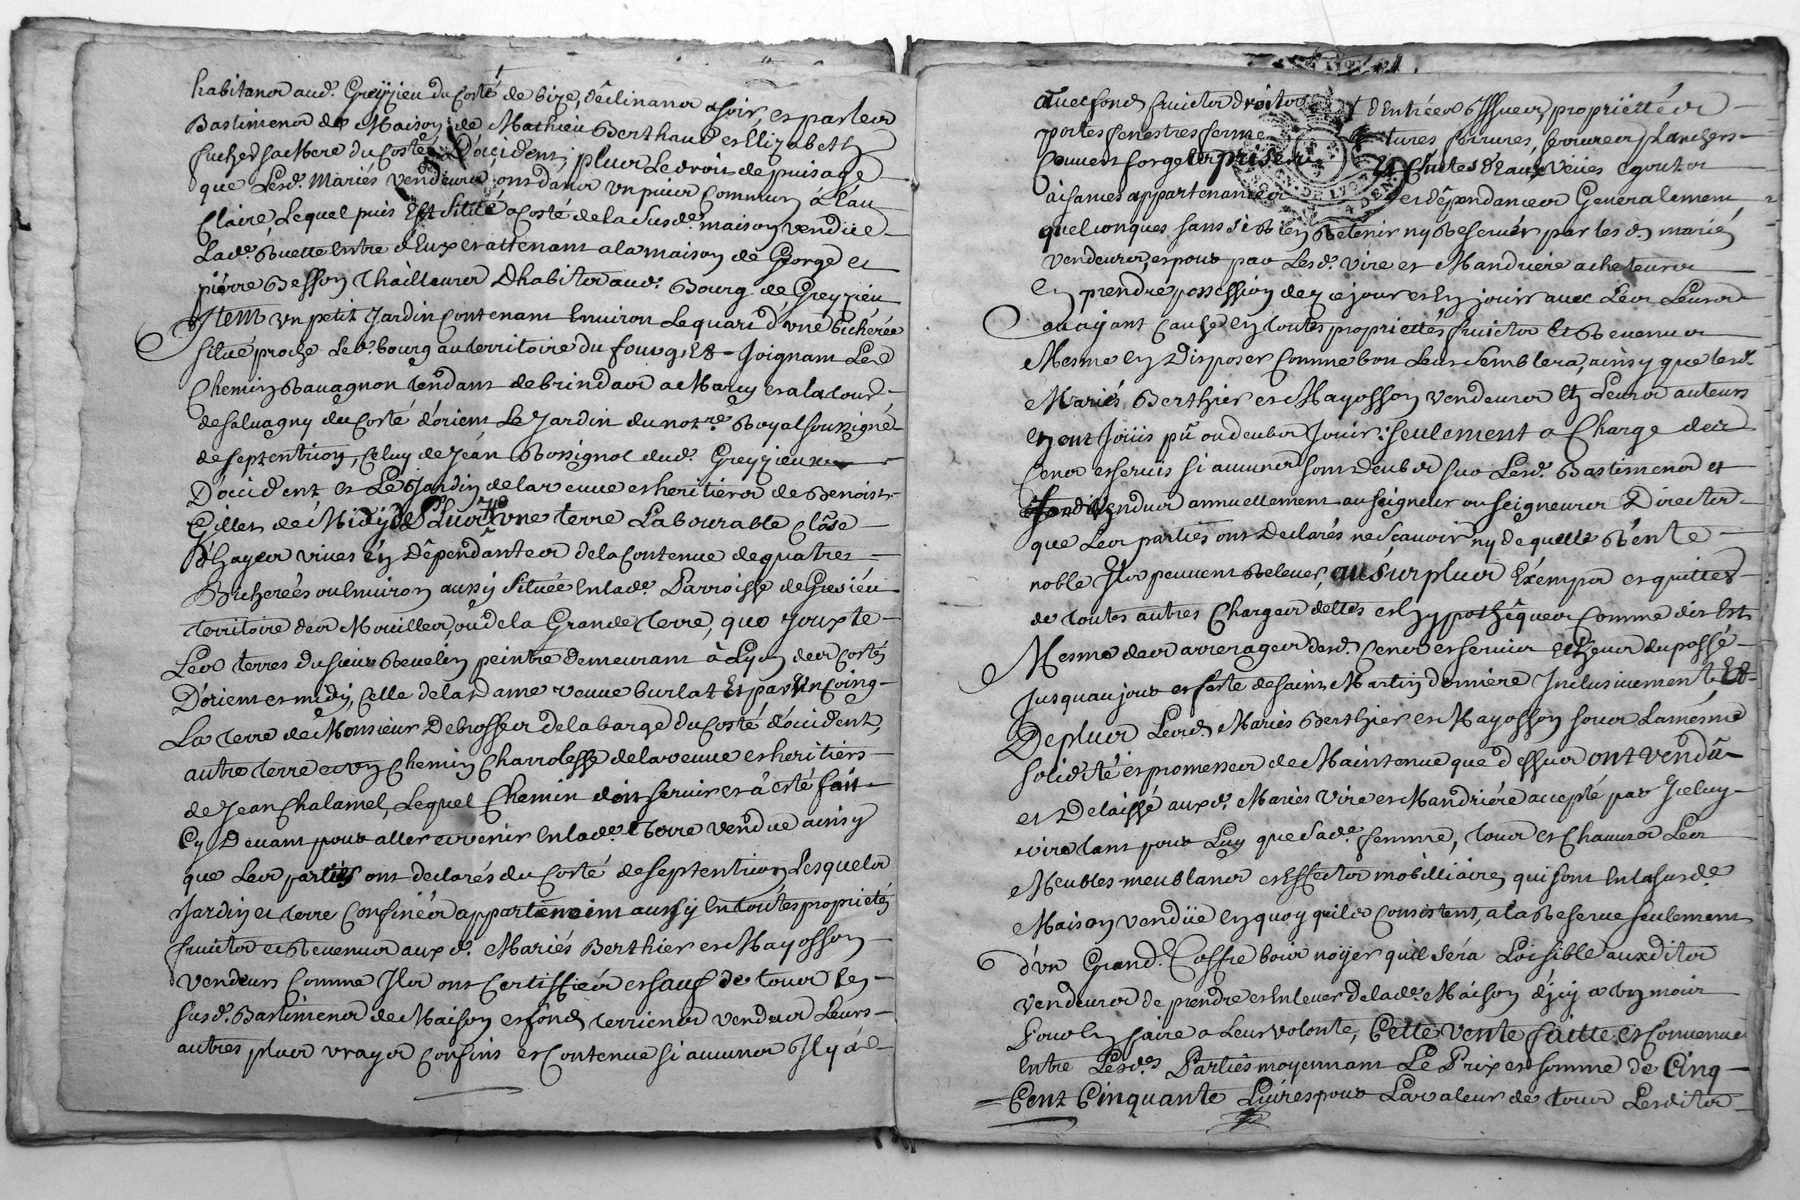 habitans aud. Greyzieu du Costé de bize, déclinant a soir, et par les
Bastiments de Maison de Mathieu Berthaud et Elizabeth
sa Mere du Costé D'ocident, plus Le droit de puisage
que Lesd. Mariés Vendeurs ont dans un puits Commun à l'au
Claire, Lequel puis Est situé a Costé de la susde. maison vendüe
Lade. Ruette Entre d'Eux et attenant a la maison de George et
pierre Besson Thailleurs D'habits aud. Bourg de Greyzieu
Item un petit Jardin Contenant Environ Le quart d'une bicherée
situé proche Led. bourg au territoire du four, Et Joignant Le
Chemin tendant de brindas a Marcy et a la tour
de salvagny du Costé d'orient Le Jardin du notre. Royal soussigné
de septentrion, Celuy de Jean Rossignol dud. Greyzieu
D'ocident et Le Jardin de la veuve et heritiers de Benoist
Gillet de Midy Plus une terre Labourable Close
d'hayes vives En Dépendantes de la Contenue de quatre
Bicherées ou Environ aussy située En lade. Parroisse de Gresieu
territoire des Mouilles, ou de la Grande terre, que Jouxte
Les terres du sieur Revelin peintre demeurant à Lyon des Costés
D'orient et midy, Celle de la Dame veuve burlat Et par Un Coing
La terre de Monsieur Debrosses de la barge du Costé d'ocident,
autre terre et un Chemin Charrolesse de la veuve et heritiers
de Jean Chalamel, Lequel Chemin doit servir et à esté fait
Cy Devant pour aller et venir En lade. terre vendue ainsy
que Les parties ont declarés du Costé de septentrion Lesquels
Jardin et terre Confinés appartenoint aussy En toutes proprietés
fruits et Revenus aux d. Mariés Berthier et Mayosson
Vendeurs Comme Ils ont Certiffiés et sauf de tous les
susd. Bastiments de Maison et fonds terriens vendus Leurs
autres plus vrays Confins et Contenue si aucuns Ily à
avec fonds fruits droits d'Entrées Issues proprietté
portes fenestres ferme tures ferrures, serrures planchers
Couvert forget Chutes d'Eaux Veües Egouts
aisances appartenances et dépendances Generalement
quelconques sans si Rien Retenir ny Reserver par lesd. mariés
vendeurs, et pour par Lesd. vire et Mandriere acheteurs
En prendre possession dez cejourdhuy En jouir avec Les Leurs
ou ayant Cause En toutes propriettés fruits Et Revenus
Mesme En Disposer Comme bon Leur semblera, ainsy que lesd.
Mariés Berthier et Mayosson vendeurs Et Leurs auteurs
En ont Joüis pû ou deub en Jouir: seulement a Charge des
Cens et servis si aucuns sont deubs sur Lesd. Bastiments et
fonds vendus annuellement au seigneur ou seigneurs Directs
que Les parties ont Declarés ne scavoir ny de quelle Rente
noble Ils peuvent Relever, au surplus Exempts et quittes
de toutes autres Charges dettes et hypothéques Comme dit Est
Mesme des arrerages desd. Cens et servis Echeus du passé
Jusquau jour et feste de saint Martin derniére Inclusivement Et
De plus Lesd. Mariés Berthier et Mayosson sous La mesme
solidité et promesses de Maintenue que dessus ont vendu
et Delaissé aux d. Mariés Vire et Mandriére accepté par Iceluy
vire tant pour Luy que sade. femme, tous et Chacuns Les
Meubles meublans et Effects mobilliaires qui sont En la susde.
Maison vendüe En quoy quils Consistent, a la Reserve seulement
d'un Grand Coffre bois noÿer quil séra Loisible auxdits
vendeurs de prendre et Enlever de lade. Maison d'jcy a un mois
Pour En faire a Leur volonté, Cette vente faitte et Convenue
Entre Lesd. Parties moyennant Le Prix et somme de Cinq
Cent Cinquante Livres pour La valeur de tous Lesdits